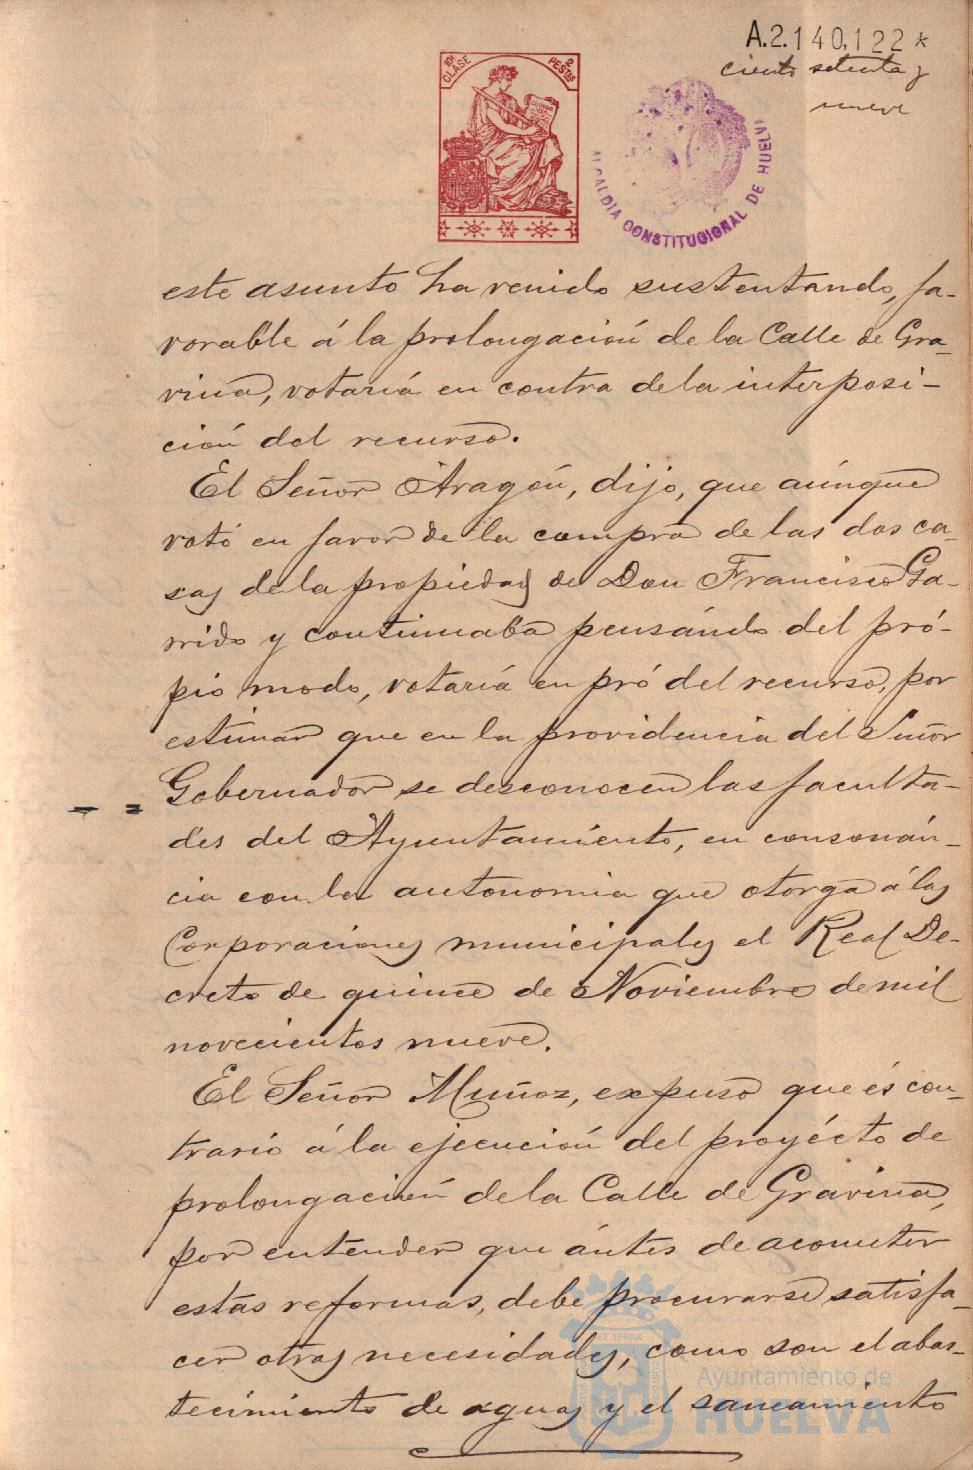 A.2.140,122*
ciento setenta y
nueve
10ª CLASE
2 PESTAS
ALCALDIA CONSTITUCIONAL DE HUELVA
este asunto ha venido sustentando, fa-
vorable á la prolongación de la Calle de Gra-
vina, votaría en contra de la interposi-
ción del recurso.
El Señor Aragón, dijo, que aúnque
votó en favor de la compra de las dos ca-
sas de la propiedad de Don Francisco Ga-
rrido y continuaba pensándo del pró-
pio modo, votaría en pró del recurso, por
estimar que en la providencia del Señor
Gobernador se desconocen las faculta-
des del Ayuntamiento, en consonán-
cia con la autonomia que otorga á las
Corporaciones municipales el Real De-
creto de quince de Noviembre de mil
novecientos nueve.
El Señor Muñoz, expuso que és con-
trario á la ejecución del proyécto de
prolongación de la Calle de Gravina,
por entender que ántes de acometer
estas reformas, debe procurarse satisfa-
cer otras necesidades, como son el abas-
tecimiento de aguas y el saneamiento
Ayuntamiento de
HUELVA